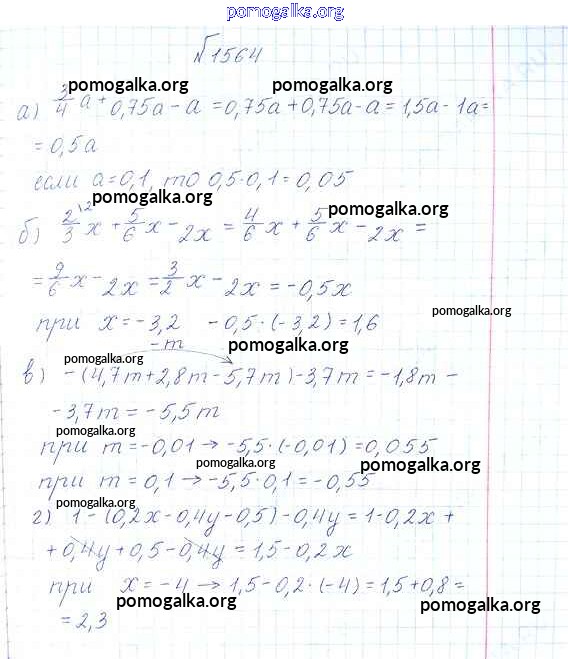 pomogalka.org
№1564
pomogalka.org pomogalka.org
а) 3/4 a + 0,75a - a = 0,75a + 0,75a - a = 1,5a - 1a =
= 0,5a
если a = 0,1, то 0,5·0,1 = 0,05
pomogalka.org
pomogalka.org
б) 2/3 \2 x + 5/6 x - 2x = 4/6 x + 5/6 x - 2x =
= 9/6 x - 2x = 3/2 x - 2x = -0,5x
pomogalka.org
при x = -3,2 -0,5·(-3,2) = 1,6
-m
pomogalka.org
pomogalka.org
в) -(4,7m + 2,8m - 5,7m) - 3,7m = -1,8m -
- 3,7m = -5,5m
pomogalka.org
при m = -0,01 → -5,5·(-0,01) = 0,055
pomogalka.org pomogalka.org
при m = 0,1 → -5,5·0,1 = -0,55
pomogalka.org
г) 1 - (0,2x - 0,4y - 0,5) - 0,4y = 1 - 0,2x +
+ 0,4y + 0,5 - 0,4y = 1,5 - 0,2x
при x = -4 → 1,5 - 0,2·(-4) = 1,5 + 0,8 =
pomogalka.org pomogalka.org
= 2,3